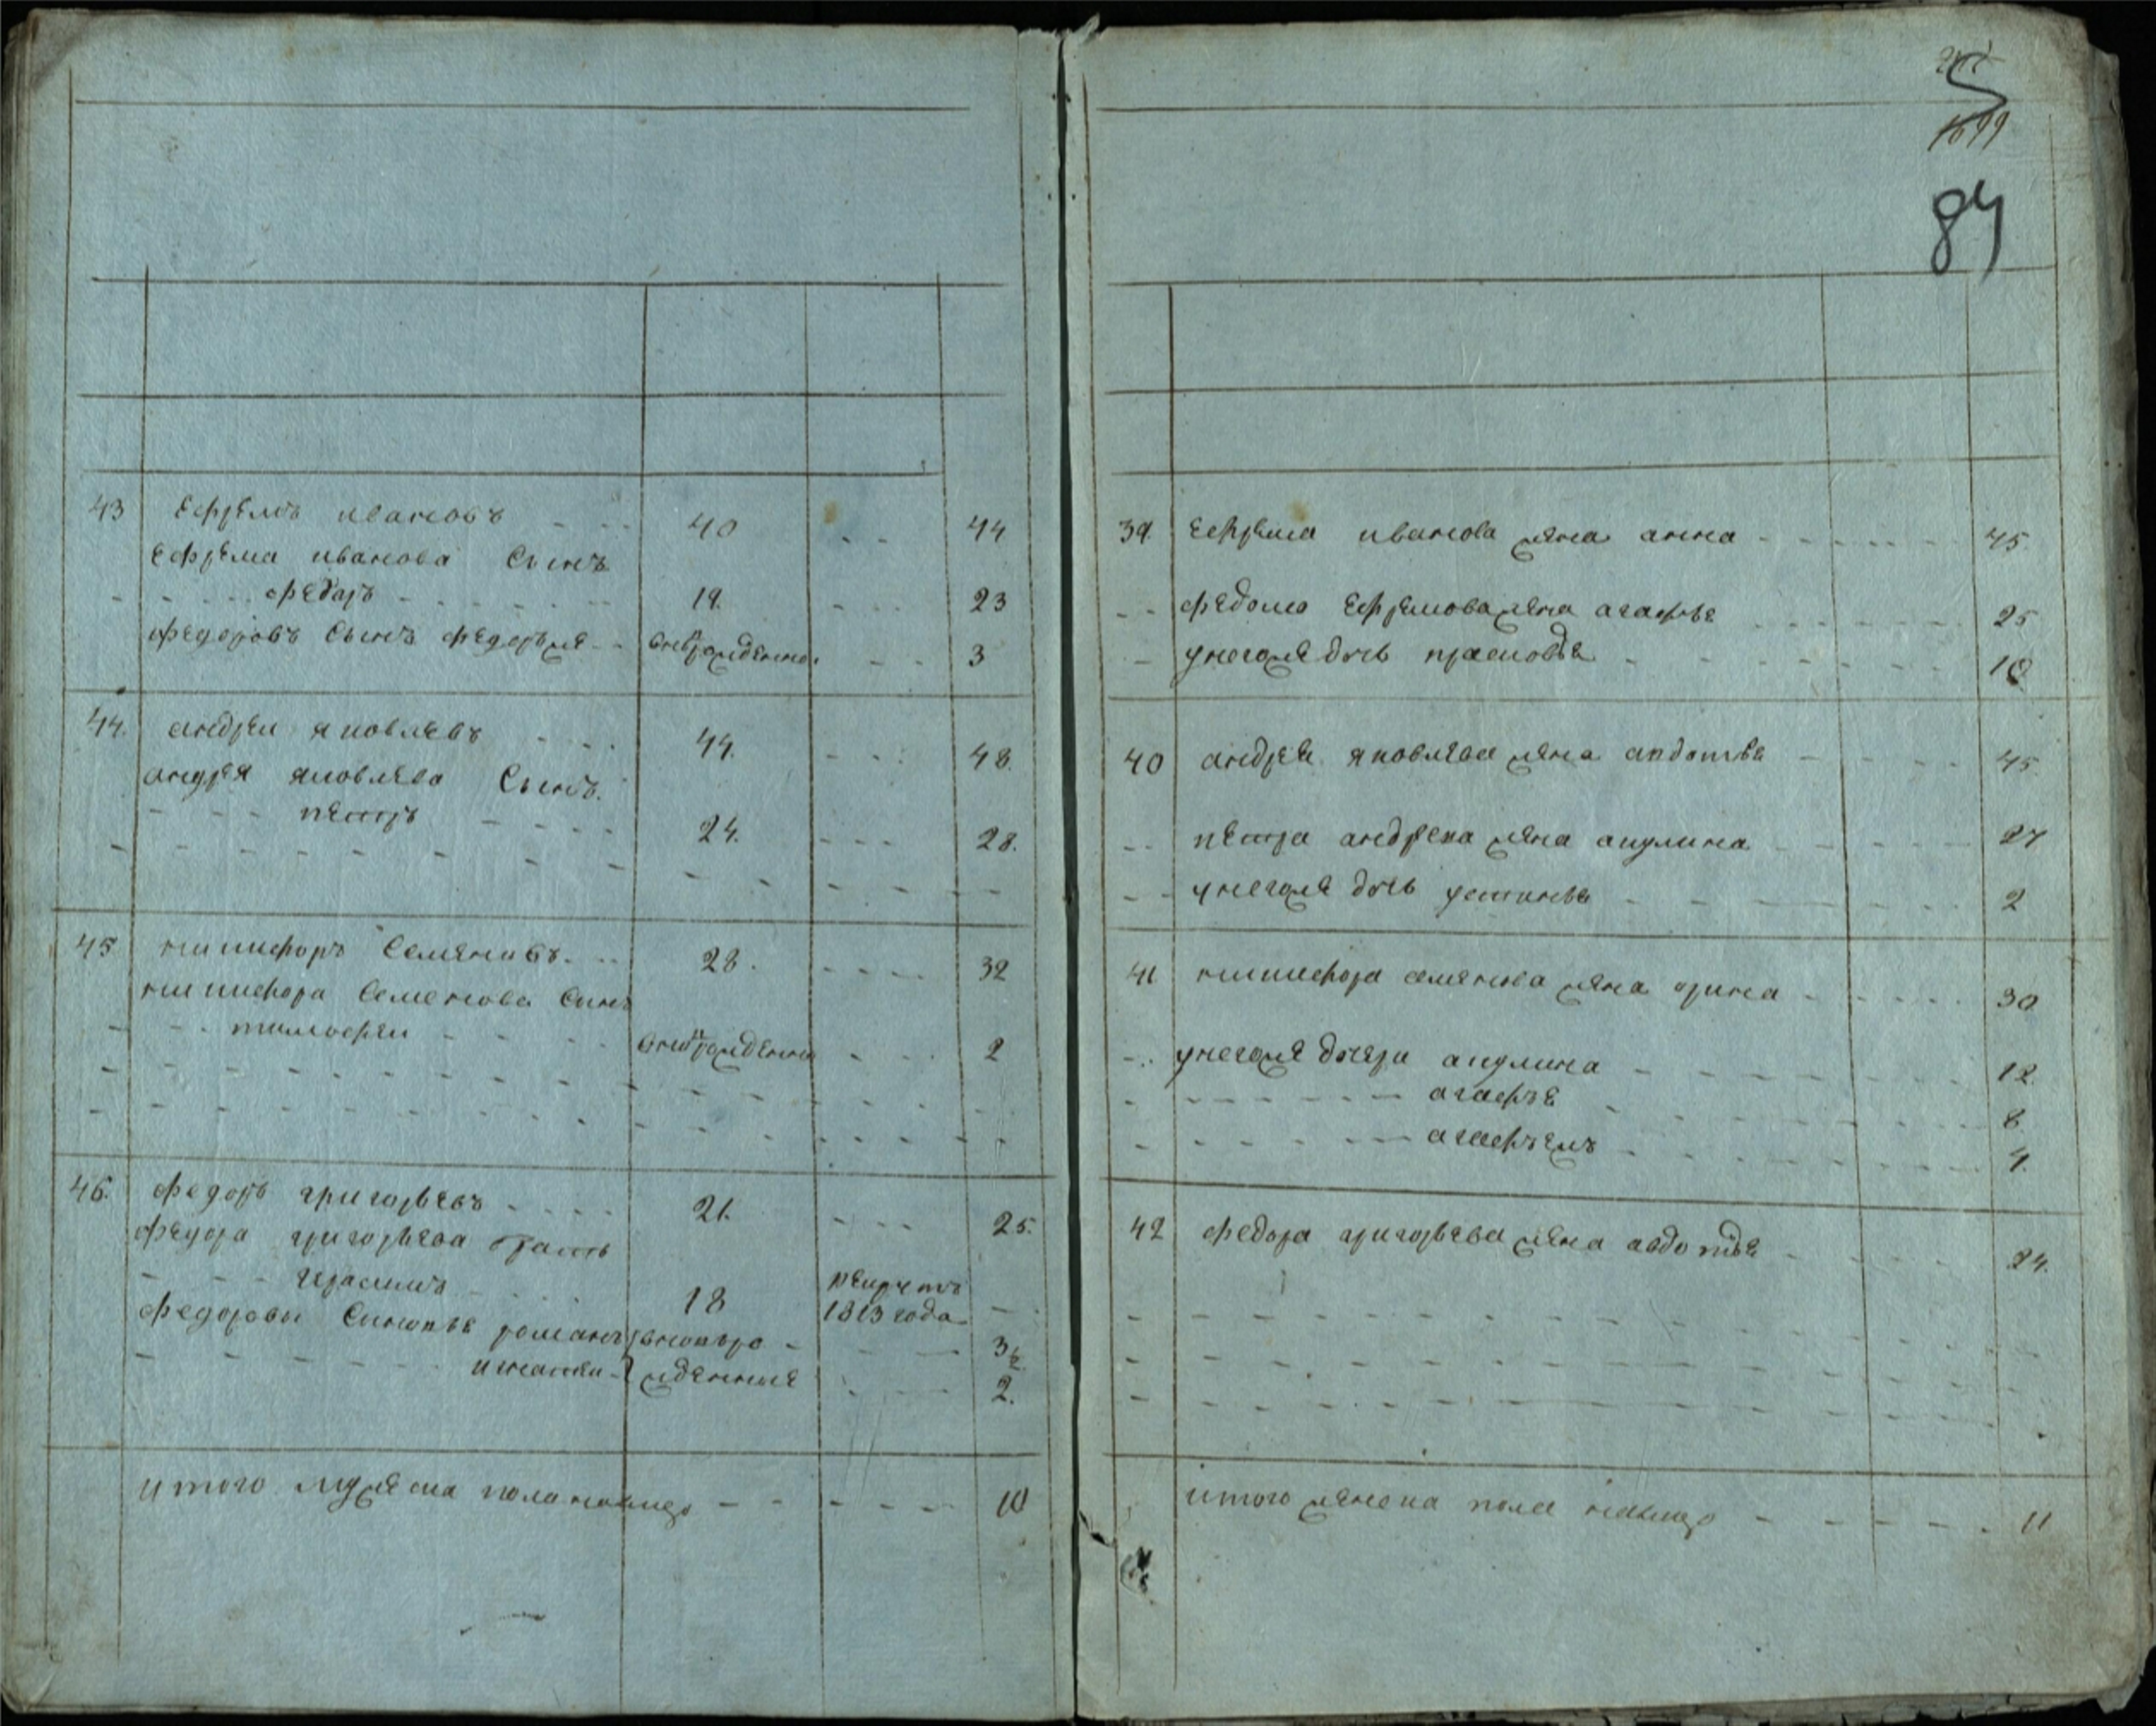 43 Ефремъ ивановъ 40 44
Ефрема иванова Сынъ
Федаръ 19. 23
Федоровъ Сынъ 3
44. андреи яковлевъ 44. 48.
андрея яковлева Сынъ.
петръ 24. 28.
45 никифоръ Семяновъ. 28. 32
никифора Семенова Сынъ
тимофеи 2
46. Федоръ григорьевъ 21. 25.
Федора григорьева братъ
герасимъ 18 рекрутъ 1813 года
Федоровы романъ 3½
2.
итого мужеска пола налицо 10
1699
84
39. Ефрема иванова жена анна 45.
Ефремова жена агафье 25
унегоже дочь прасковье 10
40 андрея яковлева жена авдотье 45.
петра андреева жена акулина 27
унегоже дочь устинье 2
41 никифора семянова жена орина 30
унегоже дочери акулина 12.
агафье 8
4.
42 Федора григорьева жена авдотье 24.
итого женска пола налицо 11